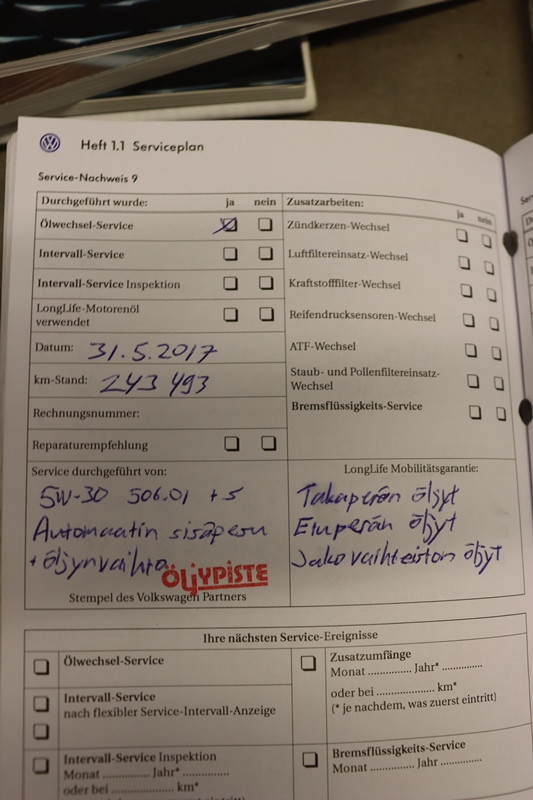 Heft 1.1 Serviceplan
Service-Nachweis 9
Durchgeführt wurde: ja nein
Ölwechsel-Service
Intervall-Service
Intervall-Service Inspektion
LongLife-Motorenöl
verwendet
Datum: 31.5.2017
km-Stand: 243 493
Rechnungsnummer:
Reparaturempfehlung
Zusatzarbeiten: ja nein
Zündkerzen-Wechsel
Luftfiltereinsatz-Wechsel
Kraftstofffilter-Wechsel
Reifendrucksensoren-Wechsel
ATF-Wechsel
Staub- und Pollenfiltereinsatz-
Wechsel
Bremsflüssigkeits-Service
Service durchgeführt von:
5W-30 506.01 + S
Automaatin sisäpesu
+ öljynvaihto
ÖLJYPISTE
Stempel des Volkswagen Partners
LongLife Mobilitätsgarantie:
Takaperän öljyt
Etuperän öljyt
Jakovaihteiston öljyt
Ihre nächsten Service-Ereignisse
Ölwechsel-Service
Intervall-Service
nach flexibler Service-Intervall-Anzeige
Intervall-Service Inspektion
Monat ............. Jahr* .............
oder bei .................... km*
Zusatzumfänge
Monat ............. Jahr* .............
oder bei .................... km*
(* je nachdem, was zuerst eintritt)
Bremsflüssigkeits-Service
Monat ............. Jahr .............